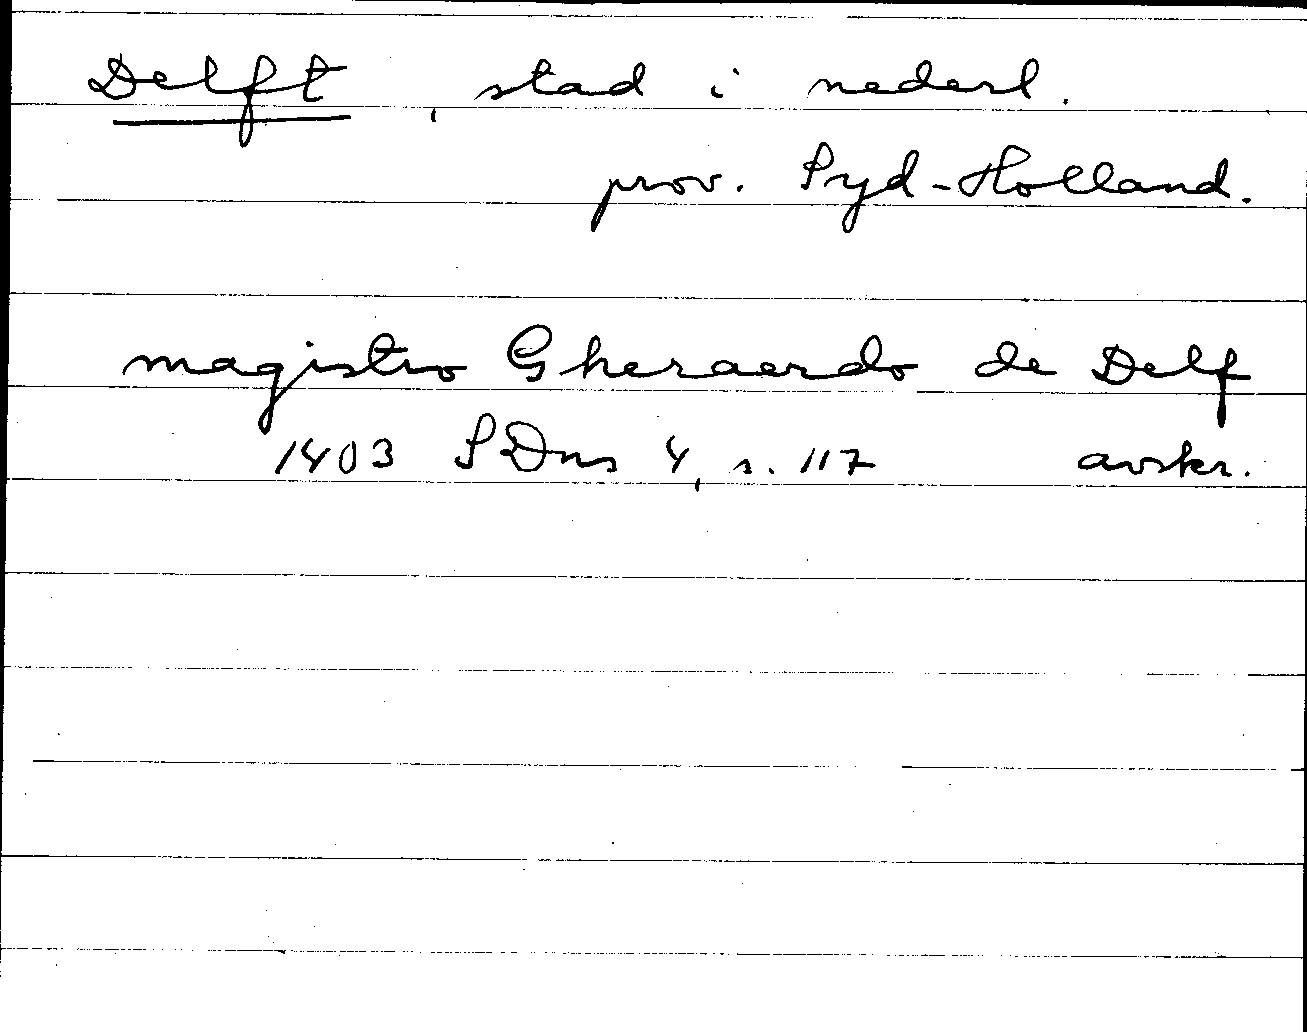 Delft, stad i nederl.
prov. Syd-Holland.
magistro Gheraerdo de Delf
1403 SDns 4, s. 117 avskr.